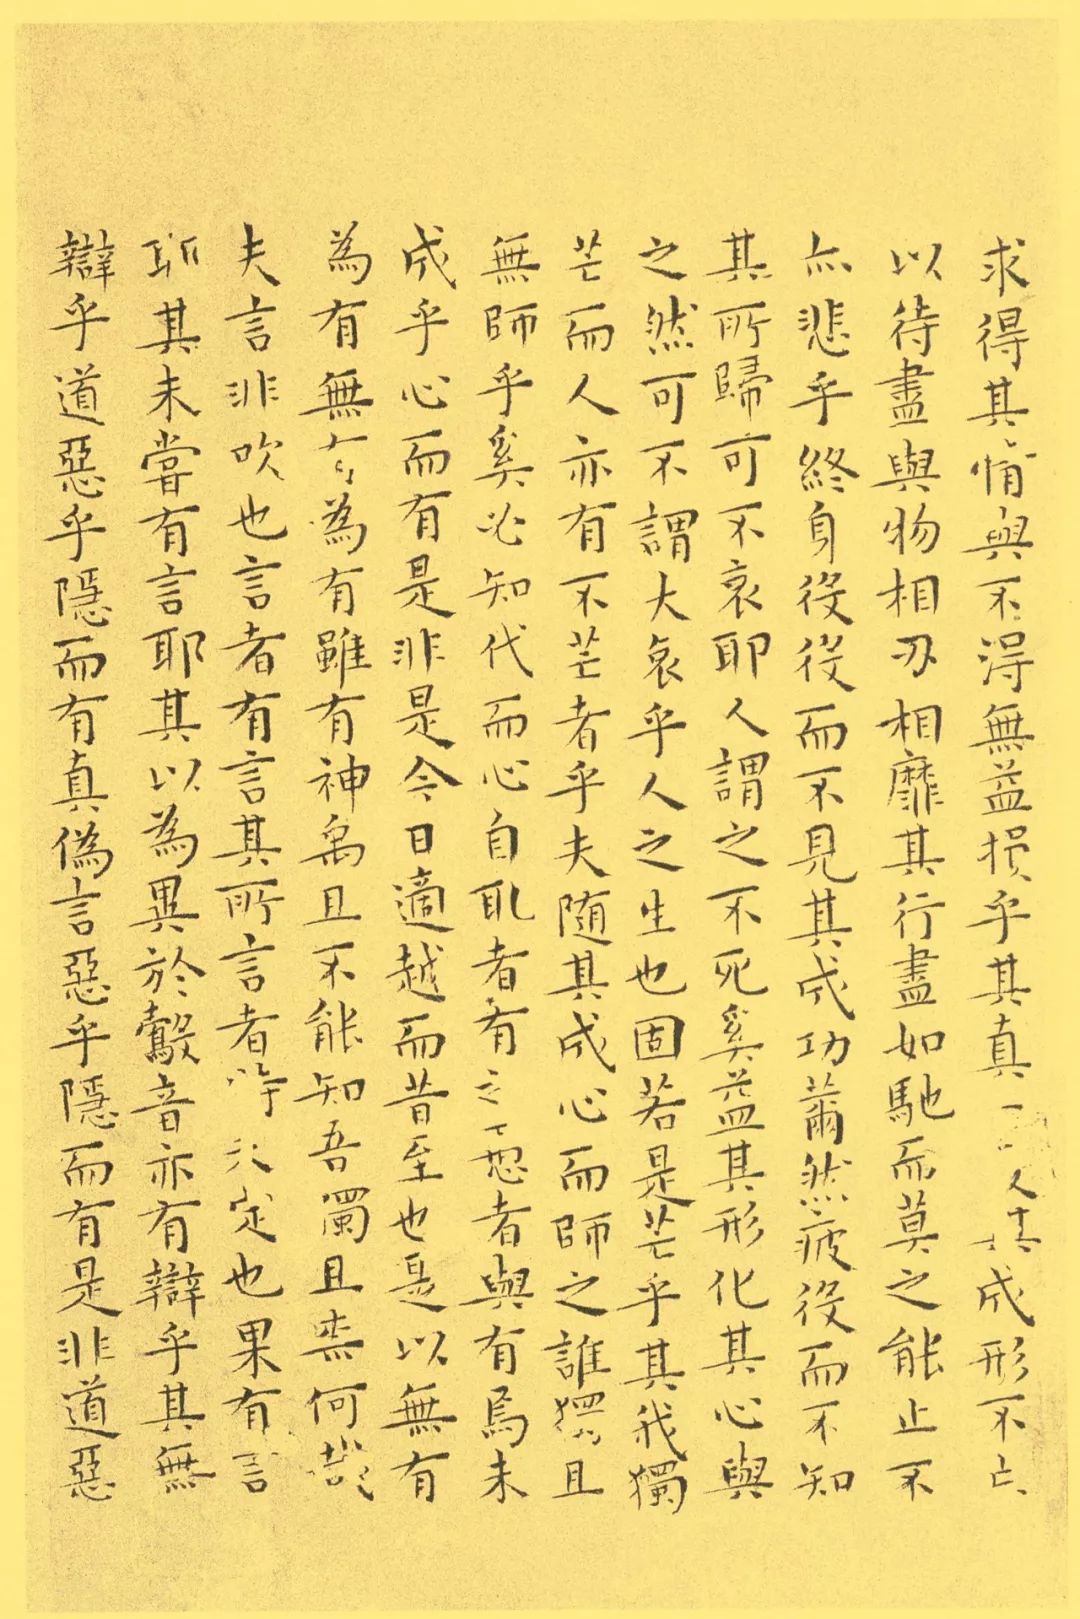 求得其情與不得無益損乎其真一 人其成形不亡
以待盡與物相刃相靡其行盡如馳而莫之能止不
亦悲乎終身役役而不見其成功薾然疲役而不知
其所歸可不哀耶人謂之不死奚益其形化其心與
之然可不謂大哀乎人之生也固若是芒乎其我獨
芒而人亦有不芒者乎夫随其成心而師之誰獨且
無師乎奚必知代而心自取者有之愚者與有焉未
成乎心而有是非是今日適越而昔至也是以無有
為有無有為有雖有神禹且不能知吾獨且柰何哉
夫言非吹也言者有言其所言者特未定也果有言
耶其未嘗有言耶其以為異於鷇音亦有辯乎其無
辯乎道惡乎隱而有真偽言惡乎隱而有是非道惡